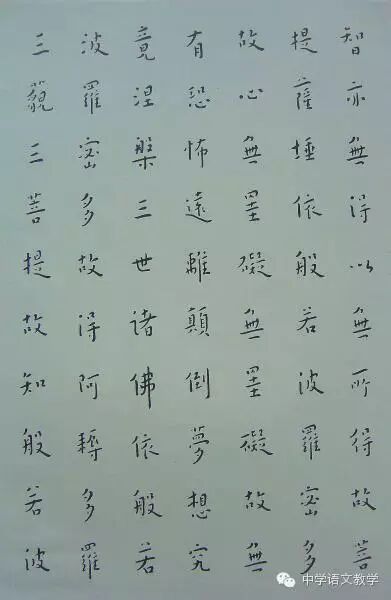 智亦無得以無所得故菩
提薩埵依般若波羅蜜多
故心無罣礙無罣礙故無
有恐怖遠離顛倒夢想究
竟涅槃三世諸佛依般若
波羅蜜多故得阿耨多羅
三藐三菩提故知般若波
中学语文教学